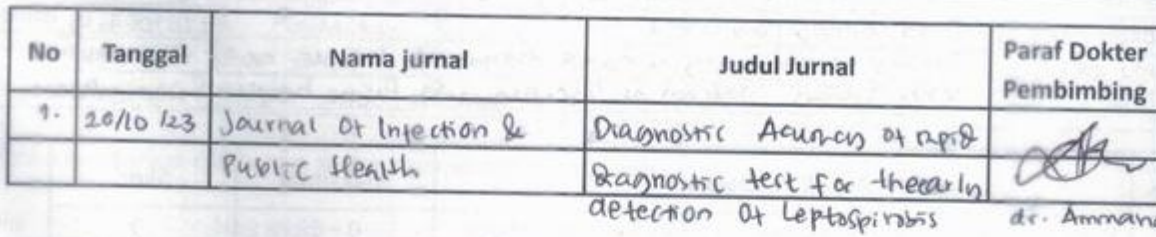 No Tanggal Nama jurnal Judul Jurnal Paraf Dokter Pembimbing
1. 20/10/23 Journal of Infection & Diagnostic Acuracy of rapid
Public Health diagnostic test for the early
detection of Leptospirosis dr. Ammand